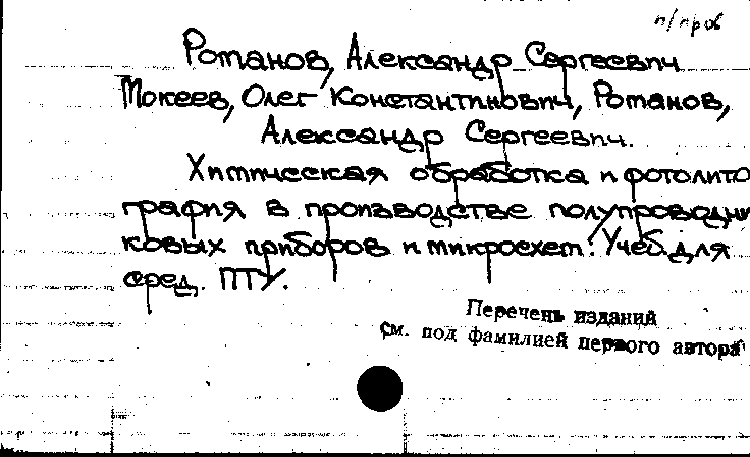 п/проб
Романов, Александр Сергеевич
Мокеев, Олег Константинович, Романов,
Александр Сергеевич.
Химическая обработка и фотолито
графия в производстве полупроводни
ковых приборов и микросхем: Учеб. для
сред. ПТУ.
Перечень изданий
см. под фамилией первого автора